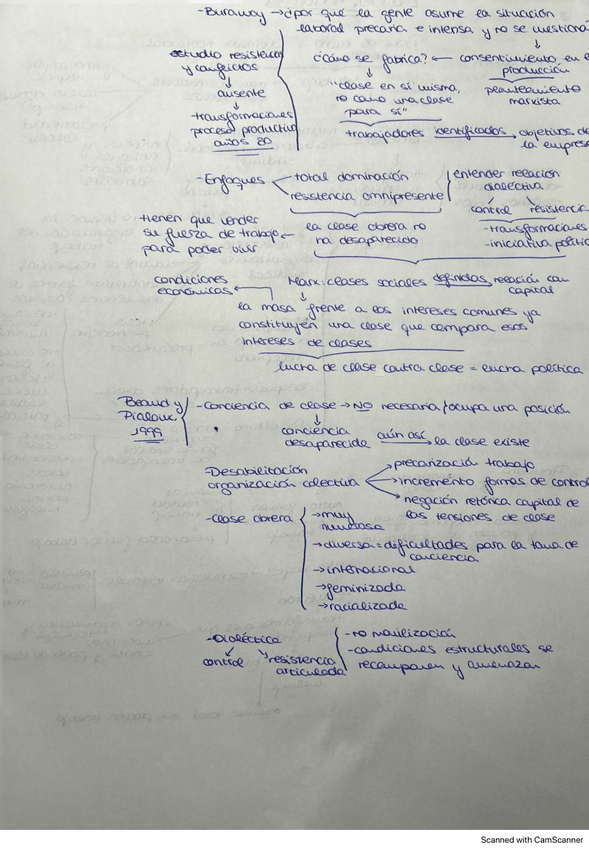 -Buraway → ¿por qué la gente asume la situación
laboral precaria e intensa y no se cuestiona?
estudio resistencias
y conflictos
↓
ausente
↓
transformaciones
proceso productivo
años 80
¿cómo se fabrica? ← consentimiento en
producción
planteamiento
marxista
"clase en sí misma,
no como una clase
para sí"
trabajadores identificados → objetivos de
la empresa
-Enfoques
total dominación
resistencia omnipresente
entender relación
dialéctica
control resistencia
-transformaciones
-iniciativa política
la clase obrera no
ha desaparecido
tienen que vender
su fuerza de trabajo ←
para poder vivir
Marx: clases sociales definidas relación con
capital
condiciones
económicas ←
la masa frente a los intereses comunes ya
constituyen una clase que compara esos
intereses de clases
lucha de clase contra clase = lucha política
Beaud y
Pialoux
1999
-Conciencia de clase → NO necesaria/ocupa una posición
↓
conciencia
desaparecida aún así → la clase existe
-Desabilitación
organización colectiva
→ precarización trabajo
→ incremento formas de control
→ negación retórica capital de
las tensiones de clase
-clase obrera
→ muy
numerosa
→ diversa = dificultades para la toma de
conciencia
→ internacional
→ feminizada
→ racializada
-Dialéctica
control resistencia
articulada
-no movilización
-condiciones estructurales se
recomponen y amenazan
Scanned with CamScanner